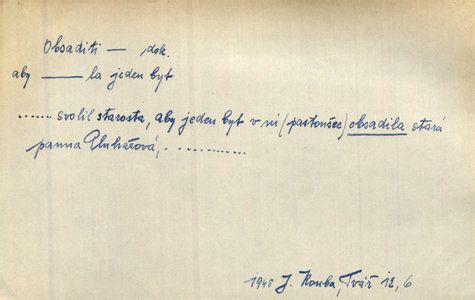 Obsaditi — dok.
aby —— la jeden byt
...... svolil starosta, aby jeden byt v ní (pastoušce) obsadila stará
panna Pluhařová, ............
1940 J. Kouba, Tvář 12, 6